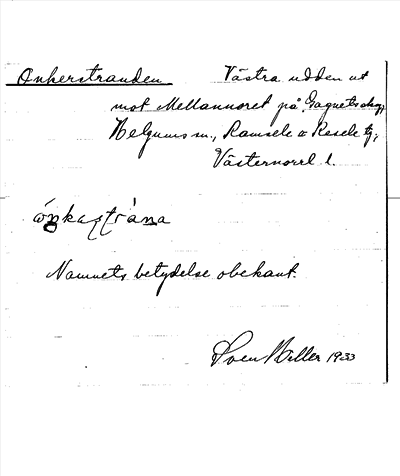 Onkerstranden Västra udden ut
mot Mellannoret på
Helgums sn, Ramsele o Resele tg,
Västernorrl l.
Namnets betydelse obekant.
Sven Biller 1933